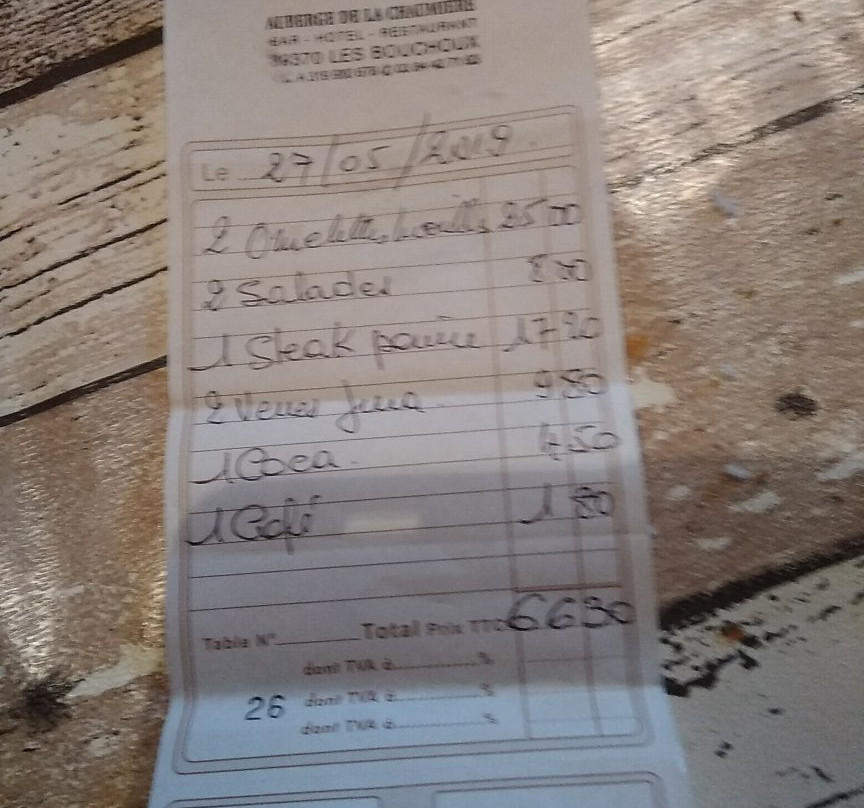 AUBERGE DE LA CHAUMIERE
BAR - HOTEL - RESTAURANT
39370 LES BOUCHOUX
Le 27/05/2019
2 Omelettes 25 00
2 Salades 8 00
1 Steak 17 20
2 Verres Jura 9 80
1 Coca 4 50
1 Café 1 80
Table N° Total Prix TTC 66 30
dont TVA à %
26 dont TVA à %
dont TVA à %